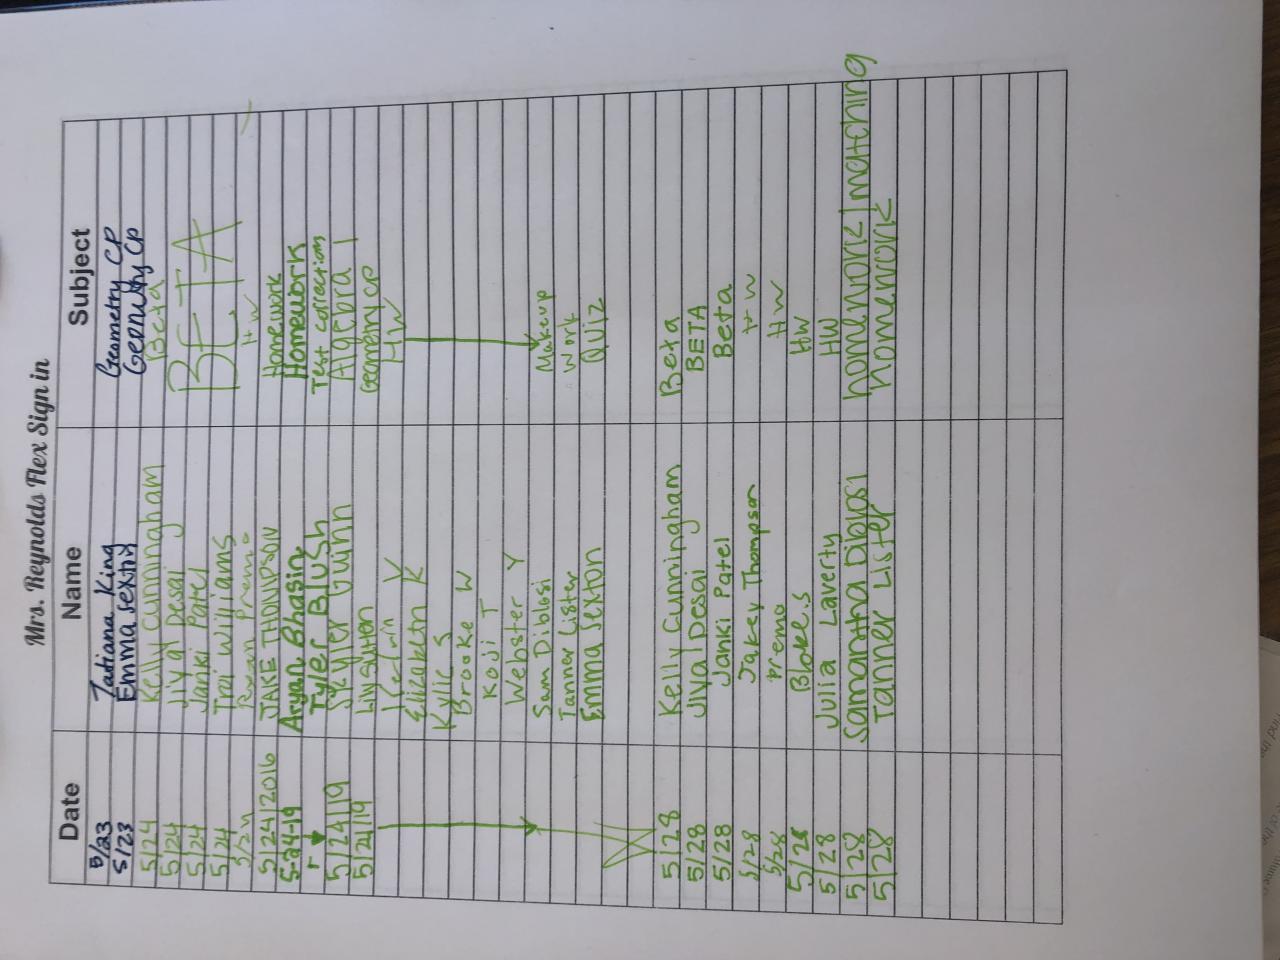 Mrs. Reynolds Flex Sign in
Date Name Subject
5/23 Tatiana King Geometry CP
5/23 Emma Sexton Geometry CP
5/24 Kelly Cunningham Beta
5/24 Jiyal Desai BETA
5/24 Janki Patel
5/24 Trai Williams
5/24 Premo HW
5/24/2016 JAKE THOMPSON Homework
5-24-19 Aryan Bhasin Homework
Tyler Blush Test corrections
5/24/19 Skyler Guinn Algebra 1
5/24/19 Lily Sutton Geometry CP
Kerwin V HW
Elizabeth K
Kylie S
Brooke W
Koji T
Webster Y
Sam Diblosi Makeup
Tanner Lister work
Emma Sexton Quiz
5/28 Kelly Cunningham Beta
5/28 Jiyal Desai BETA
5/28 Janki Patel Beta
5/28 Jakey Thompson HW
5/28 Premo HW
5/28 Blake.S HW
5/28 Julia Laverty HW
5/28 Samantha Diblosi homework/matching
5/28 Tanner Lister homework